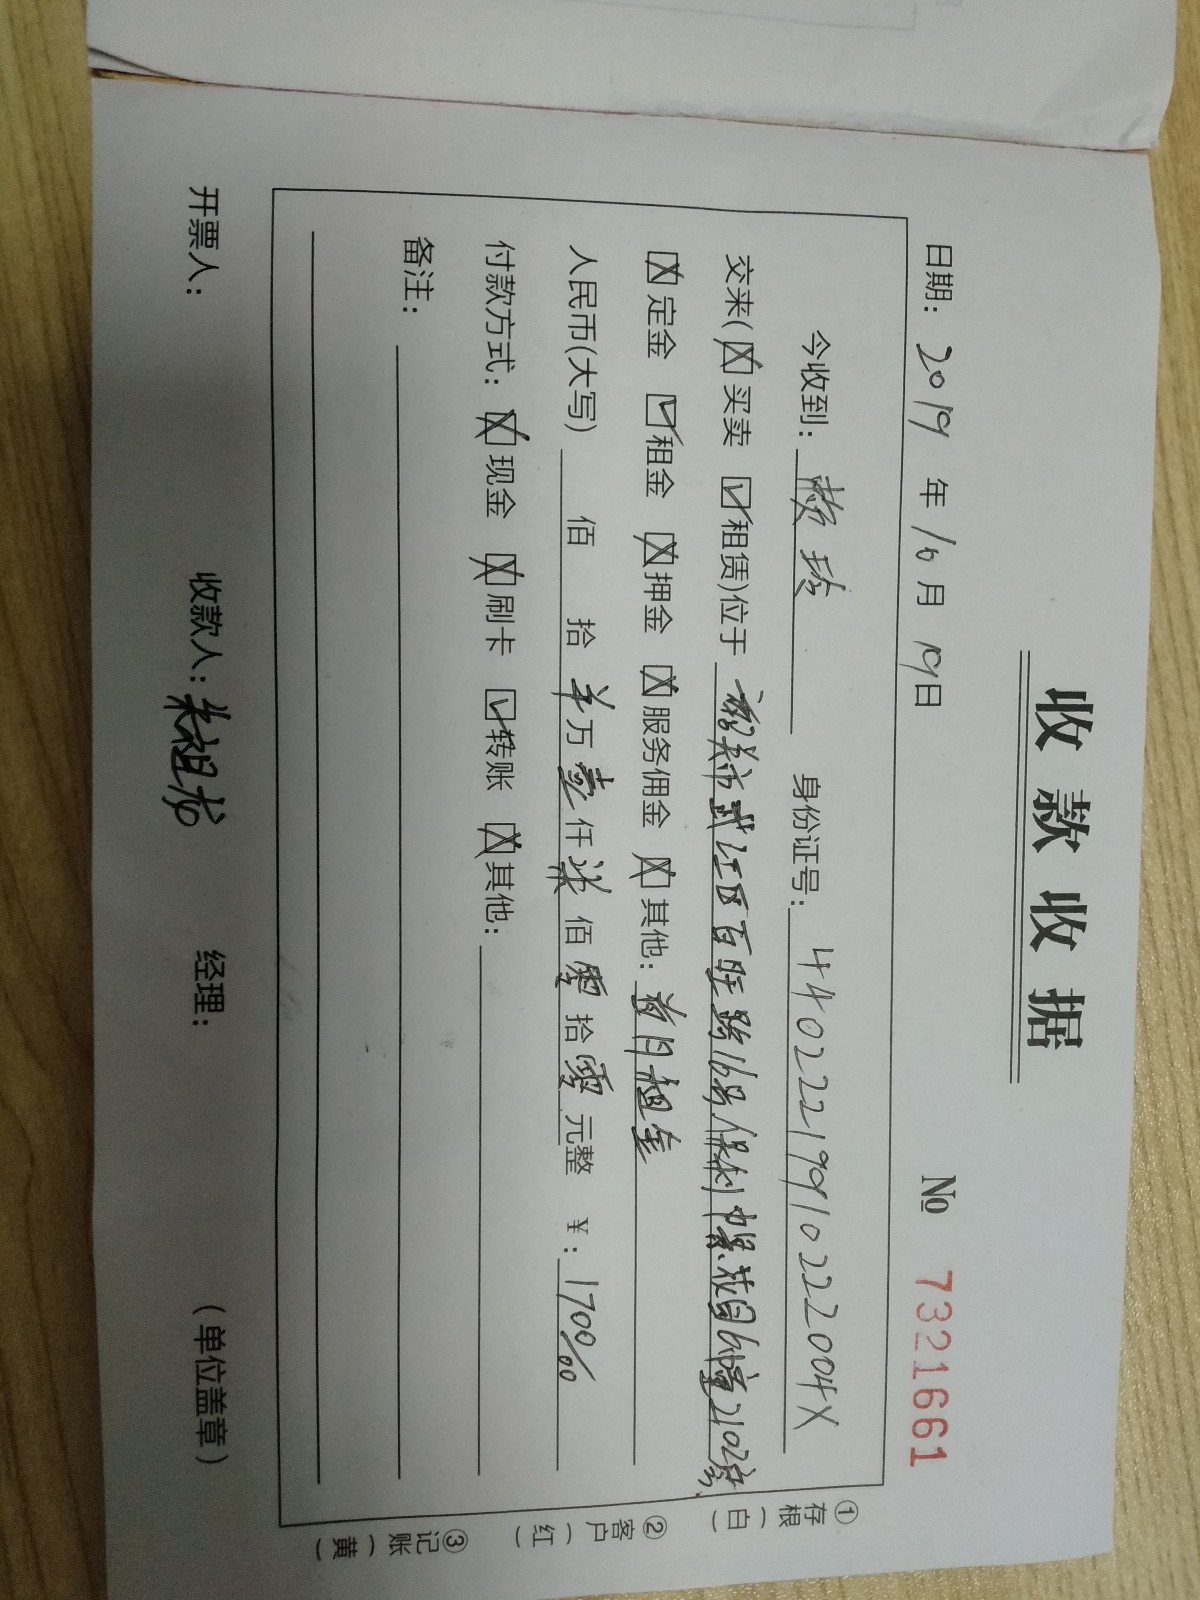 收款收据
日期：2019年10月19日 № 7321661
今收到：赖 身份证号：44022219910222004X
交来(☒买卖 ☑租赁)位于 韶关市武江区百旺路16号保利 花园 2102房
☒定金 ☑租金 ☒押金 ☒服务佣金 ☒其他：首月租金
人民币(大写) 佰 拾 万 壹仟柒佰零拾零元整 ¥：1700/00
付款方式：☒现金 ☒刷卡 ☑转账 ☒其他：
备注：
开票人： 收款人：朱祖龙 经理： （单位盖章）
①存根（白）
②客户（红）
③记账（黄）